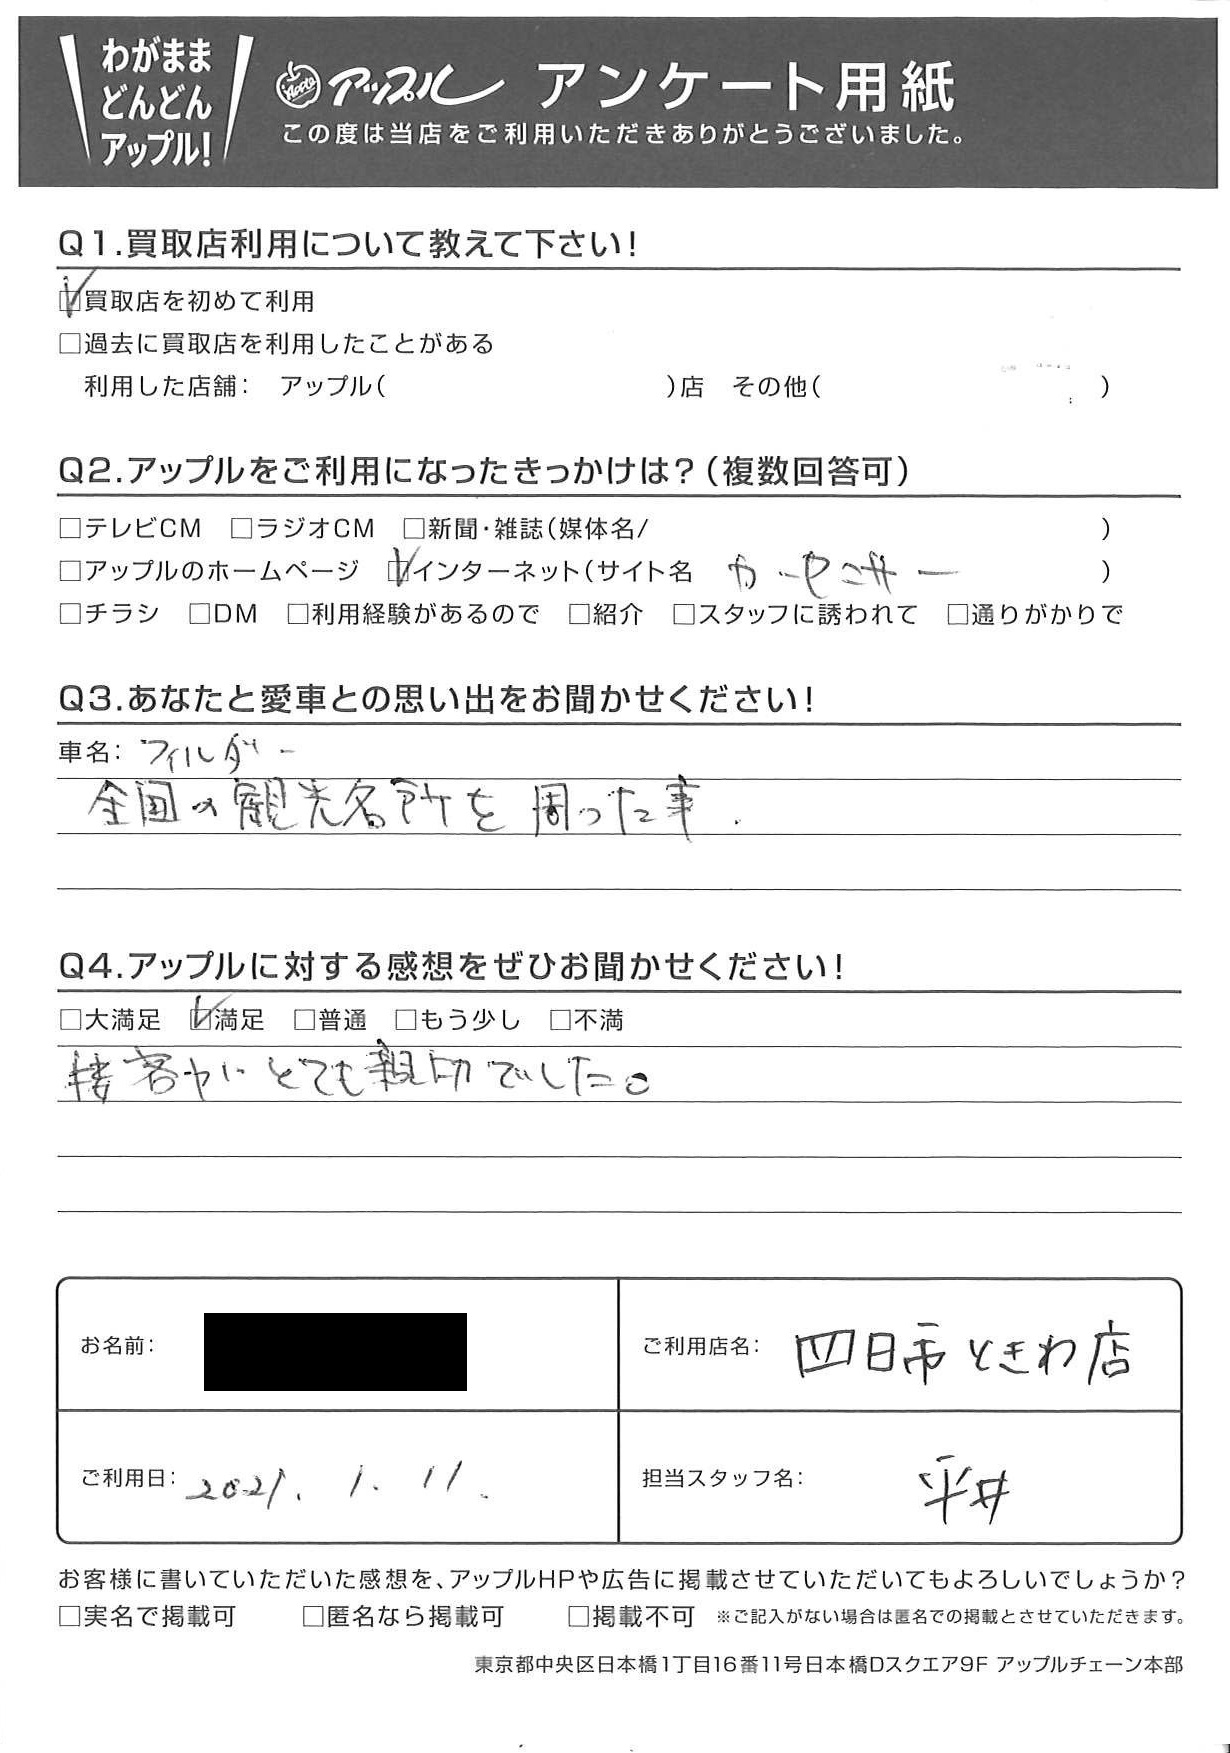 わがまま
どんどん
アップル!
Apple アップル アンケート用紙
この度は当店をご利用いただきありがとうございました。
Q1.買取店利用について教えて下さい!
☑買取店を初めて利用
□過去に買取店を利用したことがある
利用した店舗: アップル( )店 その他( )
Q2.アップルをご利用になったきっかけは?(複数回答可)
□テレビCM □ラジオCM □新聞・雑誌(媒体名/ )
□アップルのホームページ ☑インターネット(サイト名 カーセンサー )
□チラシ □DM □利用経験があるので □紹介 □スタッフに誘われて □通りがかりで
Q3.あなたと愛車との思い出をお聞かせください!
車名: フィルダー
全国の観光名所を周った事.
Q4.アップルに対する感想をぜひお聞かせください!
□大満足 ☑満足 □普通 □もう少し □不満
接客がとても親切でした。
お名前:
ご利用店名: 四日市ときわ店
ご利用日: 2021. 1. 11.
担当スタッフ名: 平井
お客様に書いていただいた感想を、アップルHPや広告に掲載させていただいてもよろしいでしょうか?
□実名で掲載可 □匿名なら掲載可 □掲載不可 ※ご記入がない場合は匿名での掲載とさせていただきます。
東京都中央区日本橋1丁目16番11号日本橋Dスクエア9F アップルチェーン本部